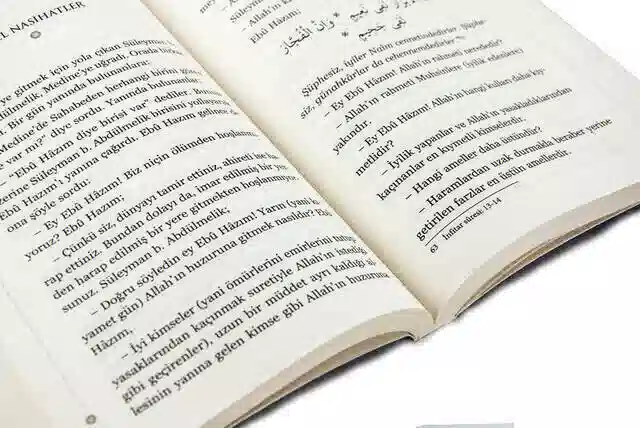 L NASİHATLER
ye gitmek için yola çıkan Süleyman
dülmelik, Medine'ye uğradı. Orada
. Bir gün yanında bulunanlara:
Medine'de Sahabeden herhangi birini
e var mı?" diye sordu. Yanında bulunanlar:
– Ebû Hâzım diye birisi var" dediler. Bunun
zerine Süleyman b. Abdülmelik birisini yollayarak
Ebû Hazım'ı yanına çağırdı. Ebû Hazım gelince
ona şöyle sordu:
– Ey Ebû Hâzım! Biz niçin ölümden hoşlanmı-
yoruz? Ebû Hazım:
– Çünkü siz, dünyayı tamir ettiniz, ahireti ise ha-
rap ettiniz. Bundan dolayı da, imar edilmiş bir yer-
den harap edilmiş bir yere gitmekten hoşlanmıyor-
sunuz. Süleyman b. Abdülmelik;
– Doğru söyledin ey Ebû Hâzım! Yarın (yani kı-
yamet gün) Allah'ın huzuruna gitmek nasıldır? Ebû
Hâzım,
– İyi kimseler (yani ömürlerini emirlerini
yasaklarından kaçınmak suretiyle Allah'ın istediği
gibi geçirenler), uzun bir müddet ayrı kaldığı
lesinin yanına gelen kimse gibi Allah'ın huzuruna
– Allah'ın
Ebû Hâzım:
نَعِيمٍ * وَإِنَّ الْفُجَّارَ
لَفِي جَحِيمٍ *
Şüphesiz, iyiler Naîm cennetindedirler. Şüphe-
siz, günahkârlar da cehennemdedirler. 63
– Ey Ebû Hâzım! Allah'ın rahmeti nerededir?
– Allah'ın rahmeti Muhsinlere (iyilik edenlere)
yakındır.
– Ey Ebû Hâzım! Allah'ın hangi kulları daha kıy-
metlidir?
– İyilik yapanlar ve Allah'ın yasakladıklarından
kaçınanlar en kıymetli kimselerdir.
– Hangi ameller daha üstündür?
– Haramlardan uzak durmakla beraber yerine
getirilen farzlar en üstün amellerdir.
63 İnfitar sûresi: 13-14